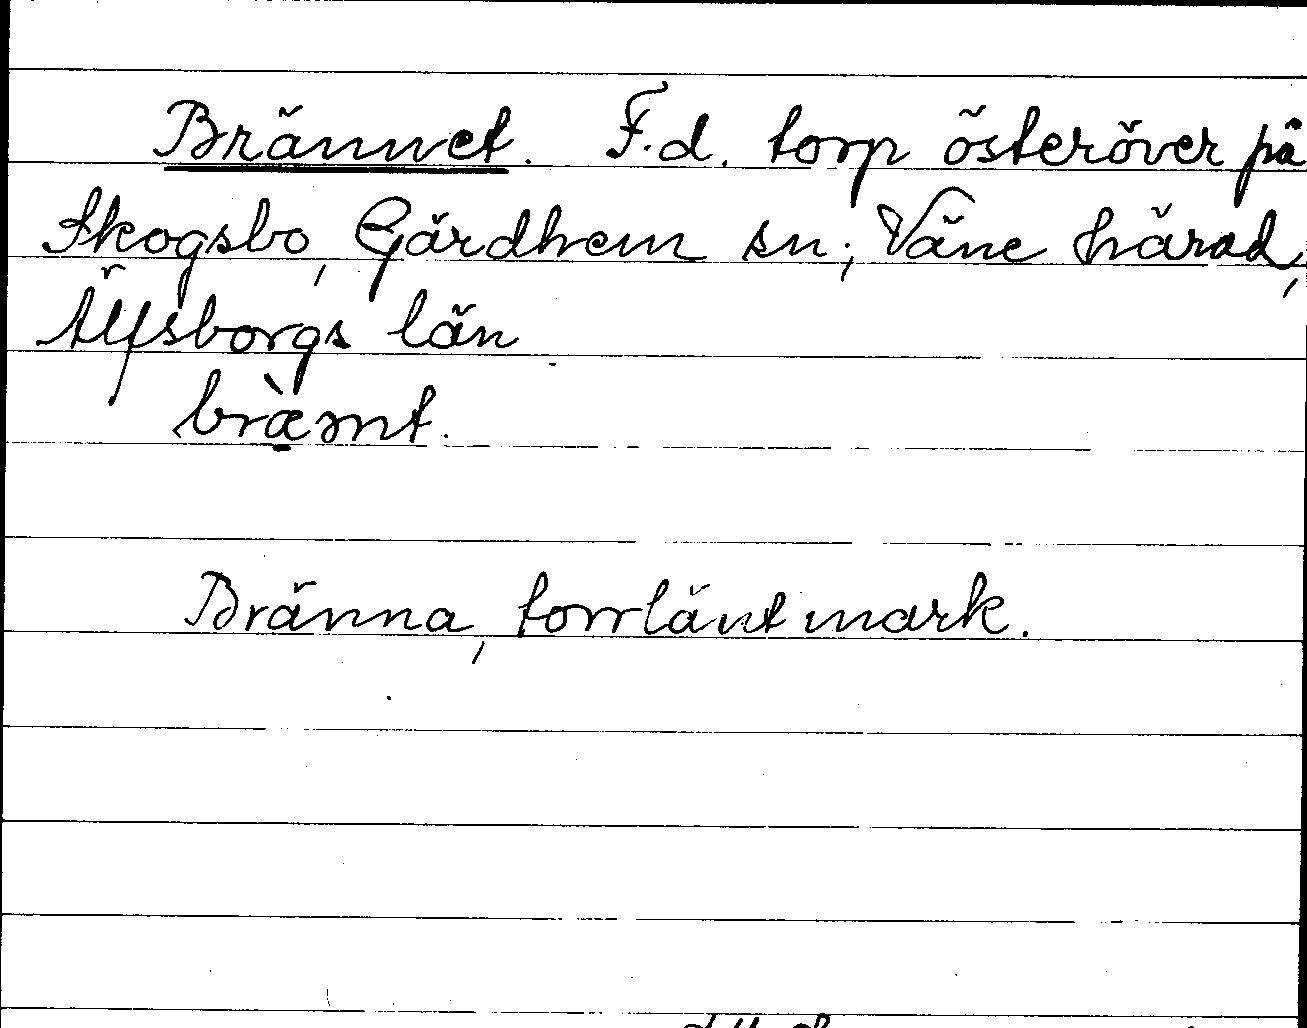 Brännet. F.d. torp österöver på
Skogsbo, Gärdhem sn; Väne härad,
Älfsborgs län
bræ̀nt.
Bränna, torrlänt mark.